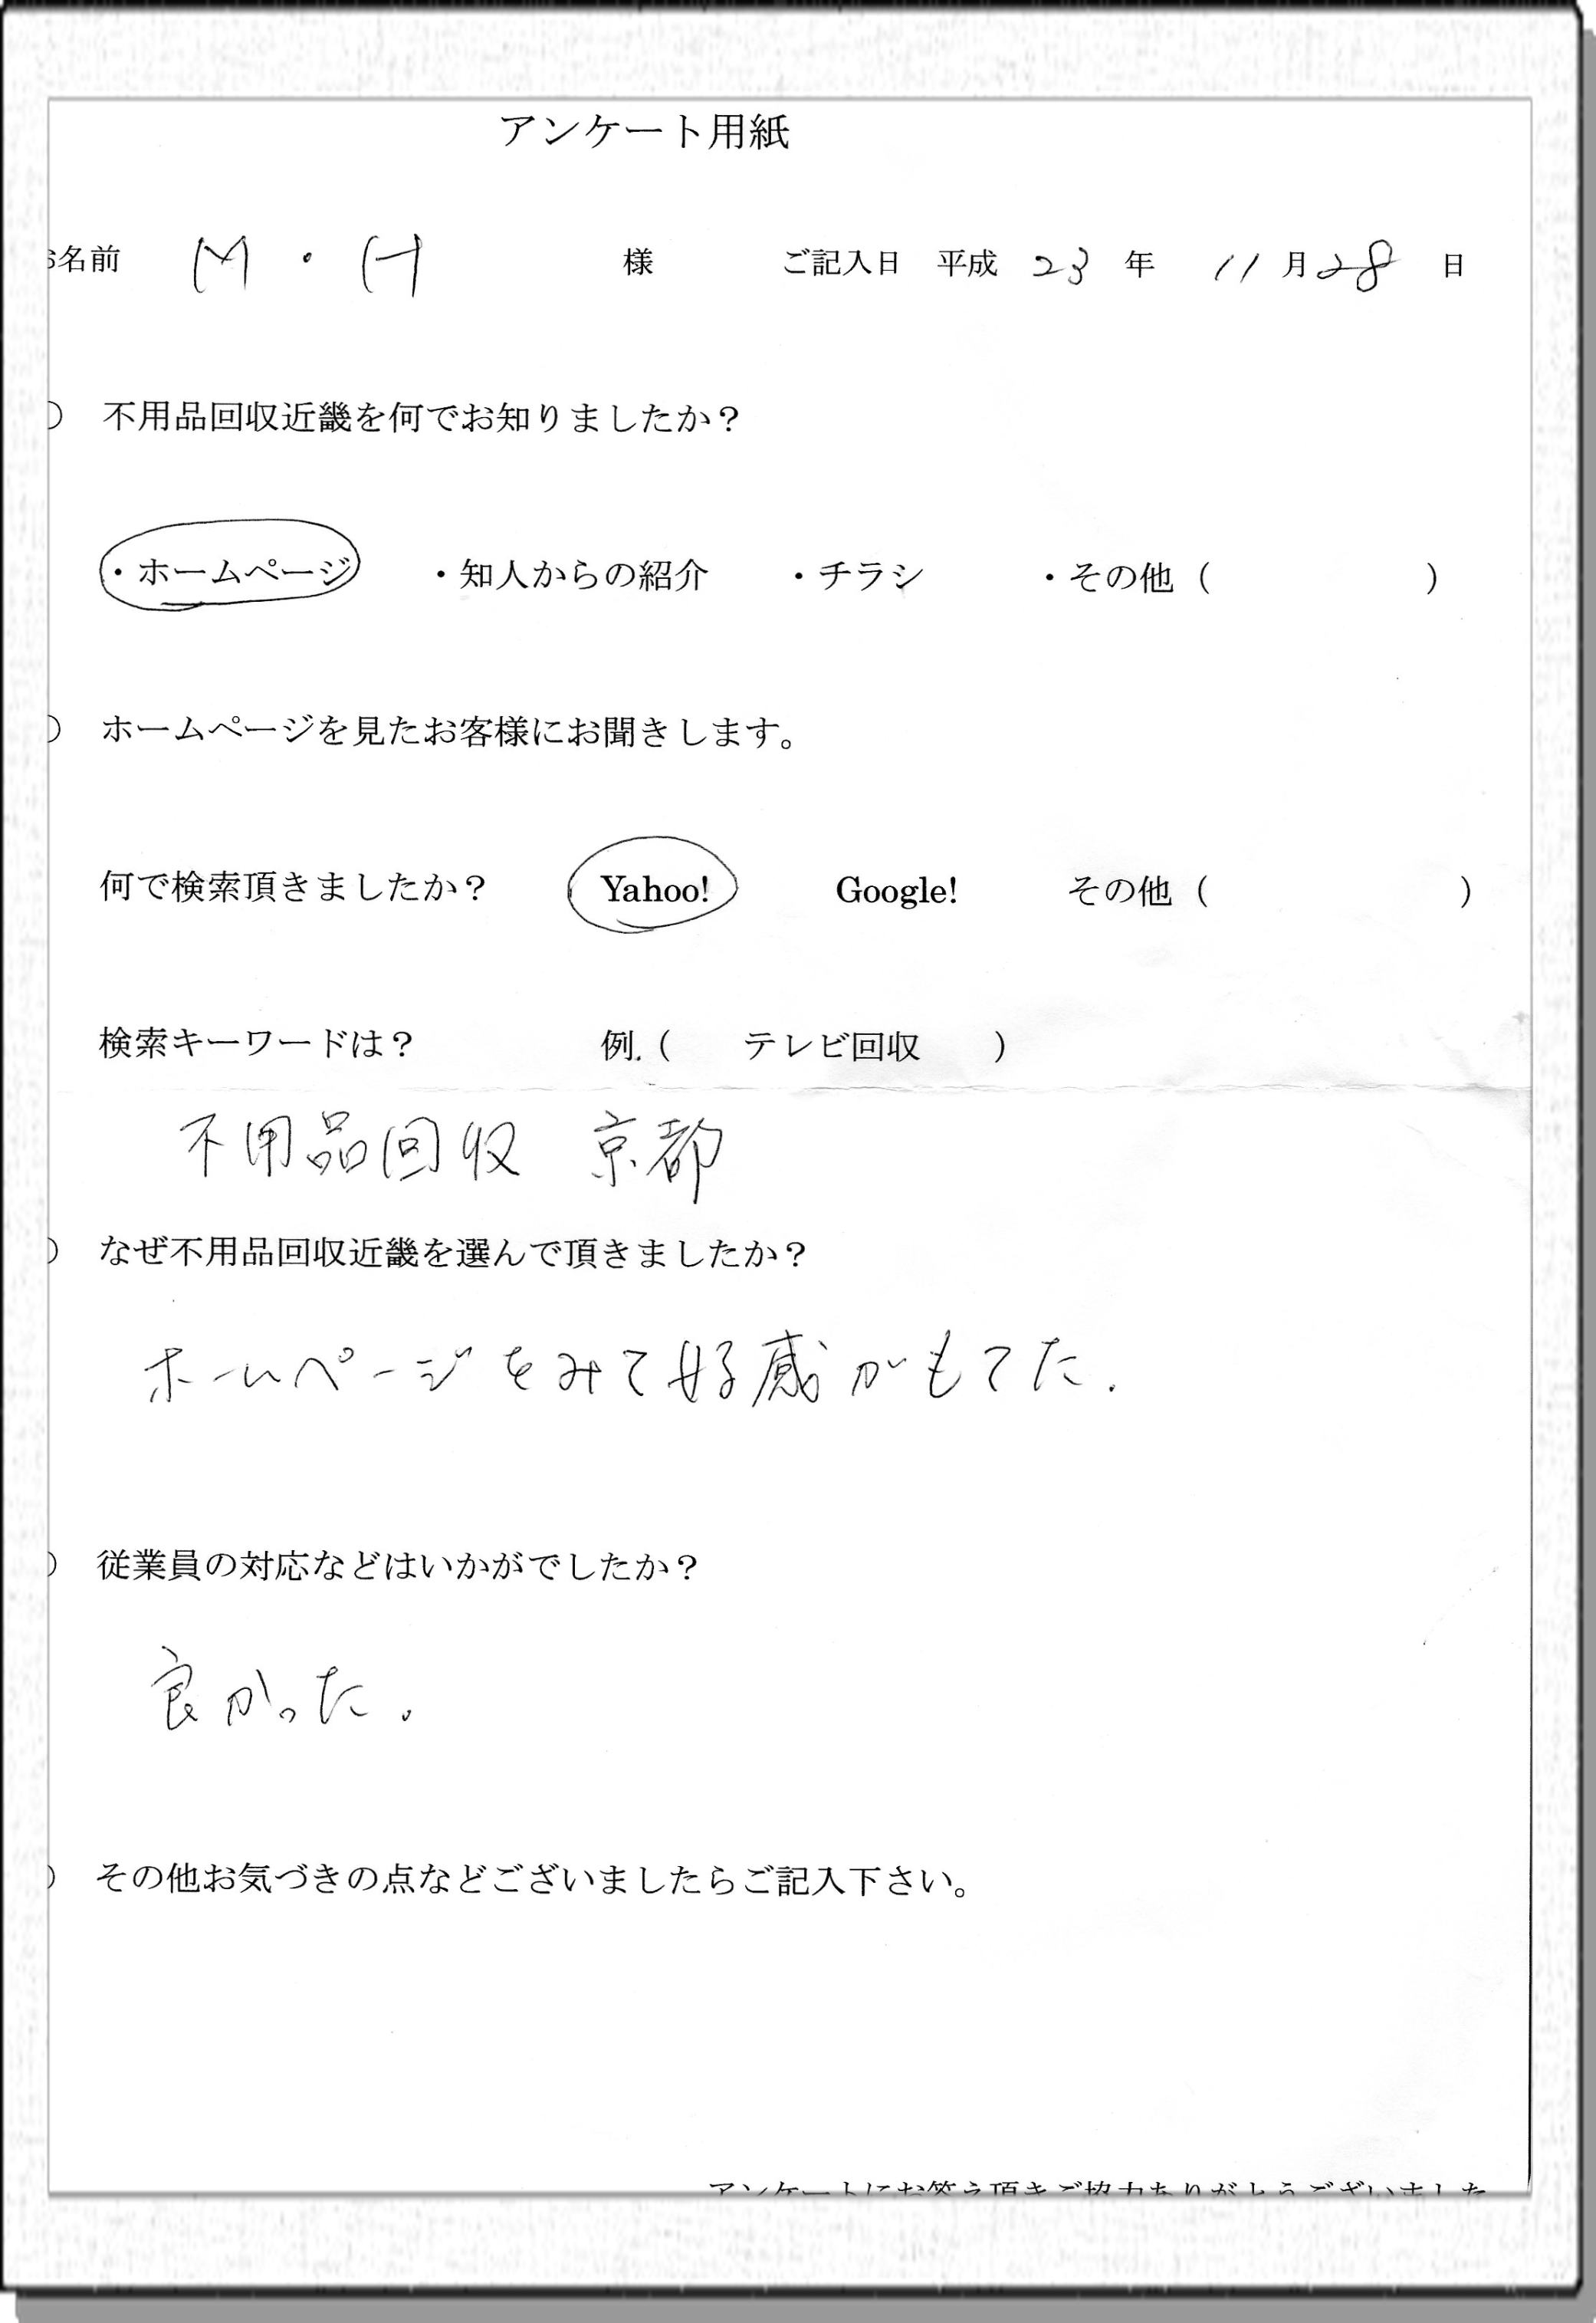 アンケート用紙
お名前 M・H 様 ご記入日 平成 23 年 11 月 28 日
不用品回収近畿を何でお知りましたか？
・ホームページ ・知人からの紹介 ・チラシ ・その他（ ）
ホームページを見たお客様にお聞きします。
何で検索頂きましたか？ Yahoo! Google! その他（ ）
検索キーワードは？ 例.（ テレビ回収 ）
不用品回収 京都
なぜ不用品回収近畿を選んで頂きましたか？
ホームページをみて好感がもてた.
従業員の対応などはいかがでしたか？
良かった。
その他お気づきの点などございましたらご記入下さい。
アンケートにお答え頂きご協力ありがとうございました